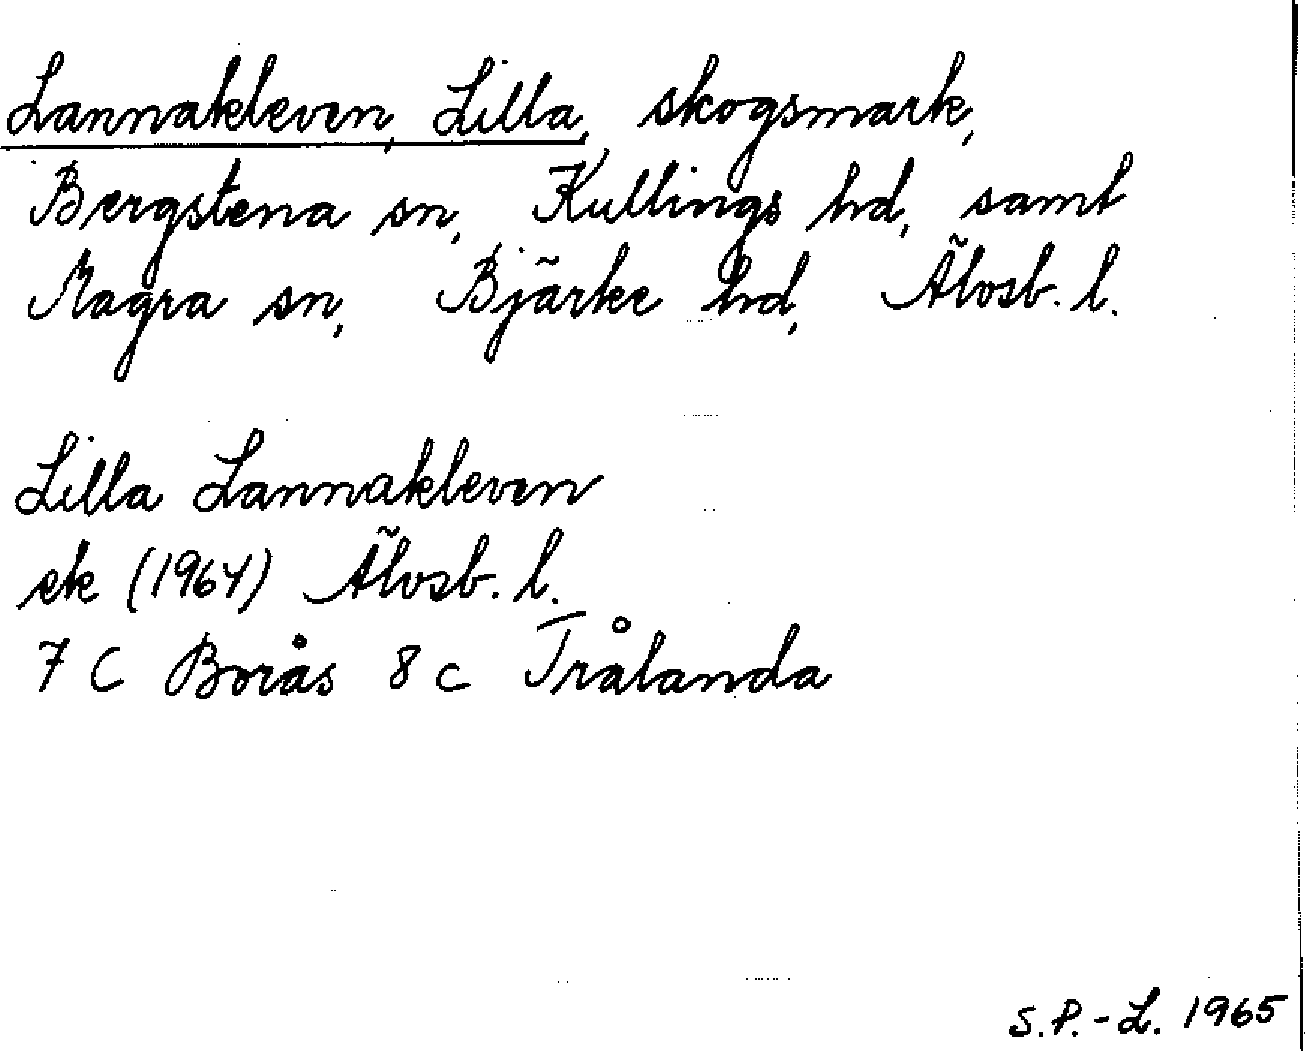 Lannakleven, Lilla, skogsmark,
Bergstena sn, Kullings hd, samt
Magra sn, Bjärke hd, Älvsb. l.
Lilla Lannakleven
ek (1964) Älvsb. l.
7 C Borås 8 c Trålanda
S.P.-L. 1965